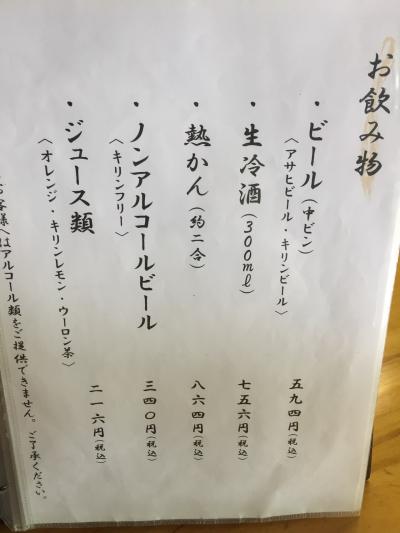 お飲み物
・ビール（中ビン） 五九四円（税込）
〈アサヒビール・キリンビール〉
・生冷酒（300ml） 七五六円（税込）
・熱かん（約二合） 八六四円（税込）
・ノンアルコールビール 三四〇円（税込）
〈キリンフリー〉
・ジュース類 二一六円（税込）
〈オレンジ・キリンレモン・ウーロン茶〉
客様へはアルコール類をご提供できません。ご了承ください。